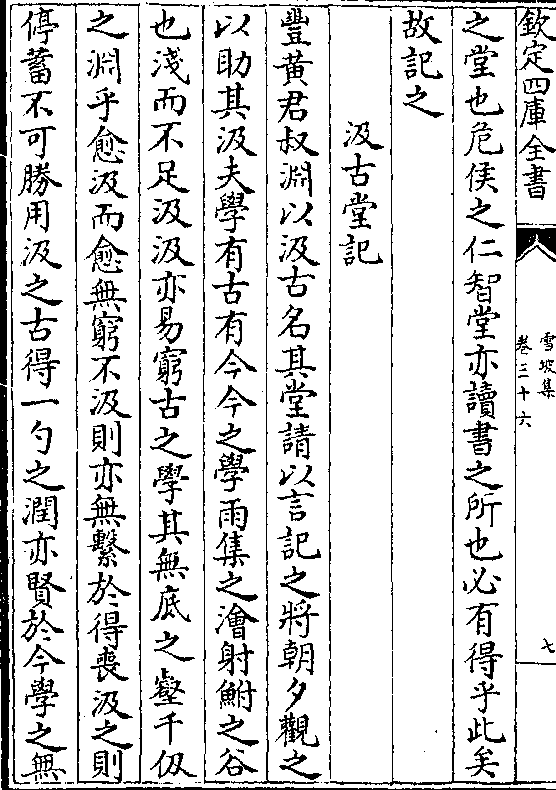 欽定四庫全書
雪坡集
卷三十六
七
之堂也危侯之仁智堂亦讀書之所也必有得乎此矣
故記之
汲古堂記
豐黃君叔淵以汲古名其堂請以言記之將朝夕觀之
以助其汲夫學有古有今今之學雨集之澮射鮒之谷
也淺而不足汲汲亦易窮古之學其無底之壑千仭
之淵乎愈汲而愈無窮不汲則亦無繫於得喪汲之則
停蓄不可勝用汲之古得一勺之潤亦賢於今學之無